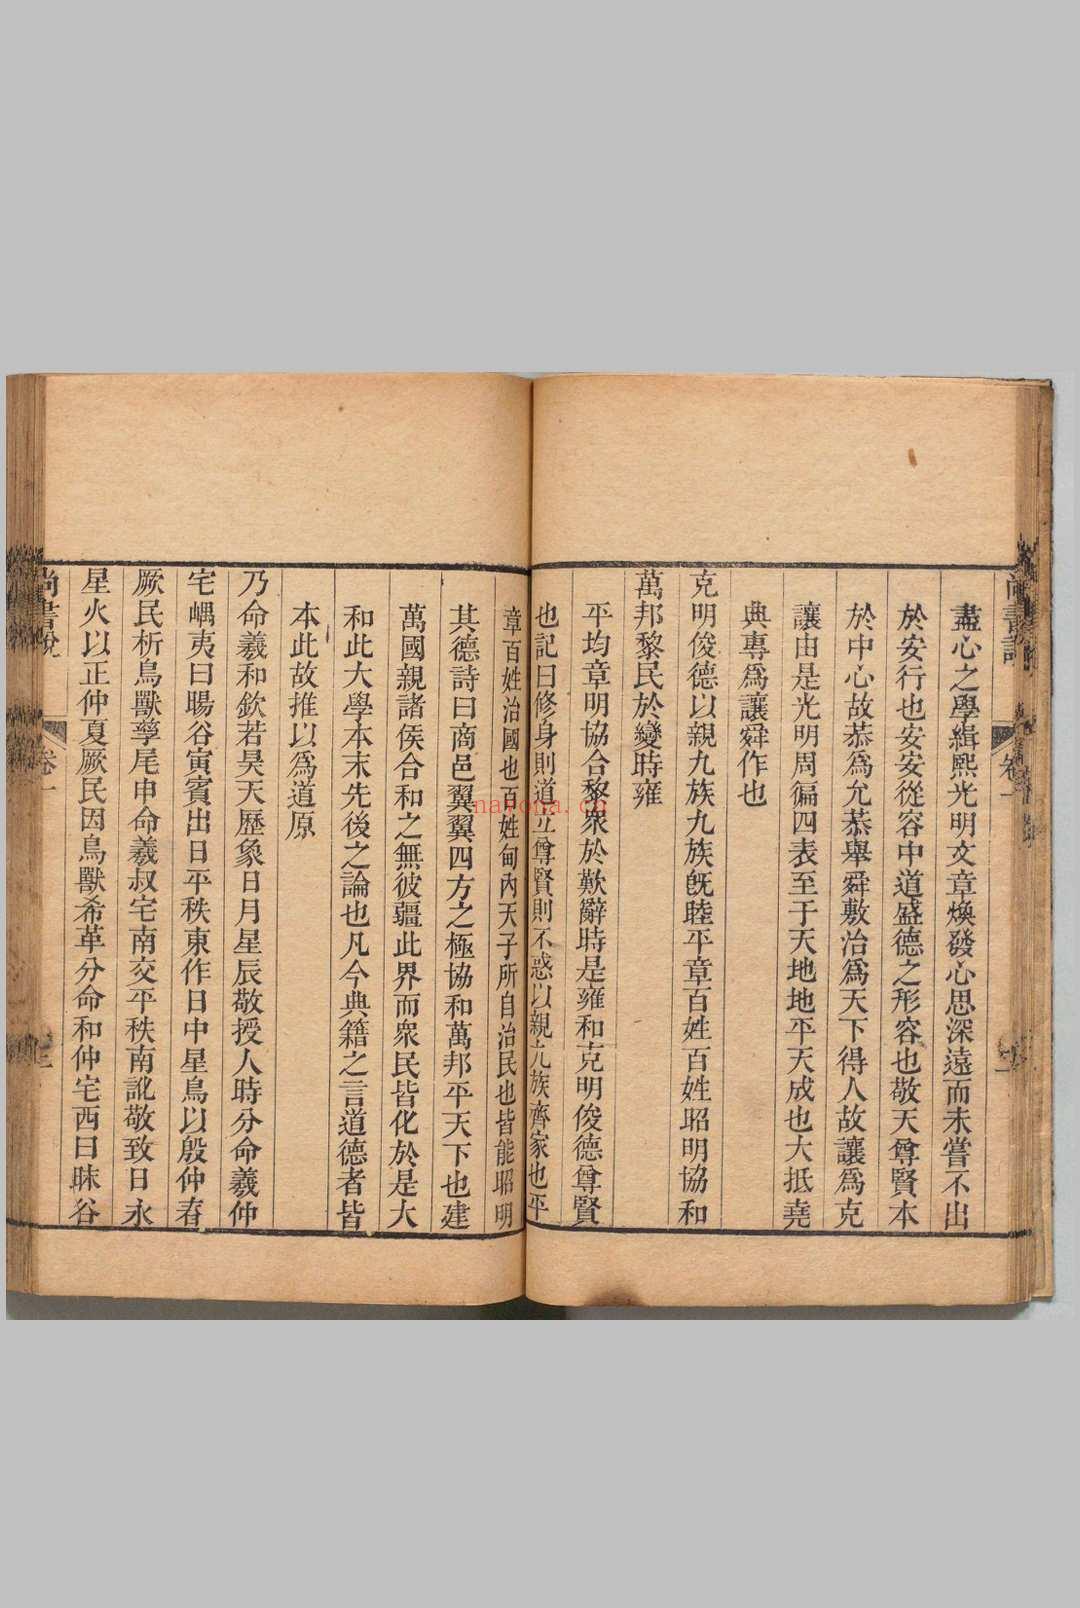 尚書說
卷一
盡心之學緝熙光明文章煥發心思深遠而未嘗不出
於安行也安安從容中道盛德之形容也敬天尊賢本
於中心故恭爲允恭舉舜敷治爲天下得人故讓爲克
讓由是光明周徧四表至于天地地平天成也大抵堯
典專爲讓舜作也
克明俊德以親九族九族旣睦平章百姓百姓昭明協和
萬邦黎民於變時雍
平均章明協合黎衆於歎辭時是雍和克明俊德尊賢
也記曰修身則道立尊賢則不惑以親九族齊家也平
章百姓治國也百姓甸內天子所自治民也皆能昭明
其德詩曰商邑翼翼四方之極協和萬邦平天下也建
萬國親諸侯合和之無彼疆此界而衆民皆化於是大
和此大學本末先後之論也凡今典籍之言道德者皆
本此故推以爲道原
乃命羲和欽若昊天歷象日月星辰敬授人時分命羲仲
宅嵎夷曰暘谷寅賓出日平秩東作日中星鳥以殷仲春
厥民析鳥獸孳尾申命羲叔宅南交平秩南訛敬致日永
星火以正仲夏厥民因鳥獸希革分命和仲宅西曰昧谷
尚書說
卷一
三
nayona.cn